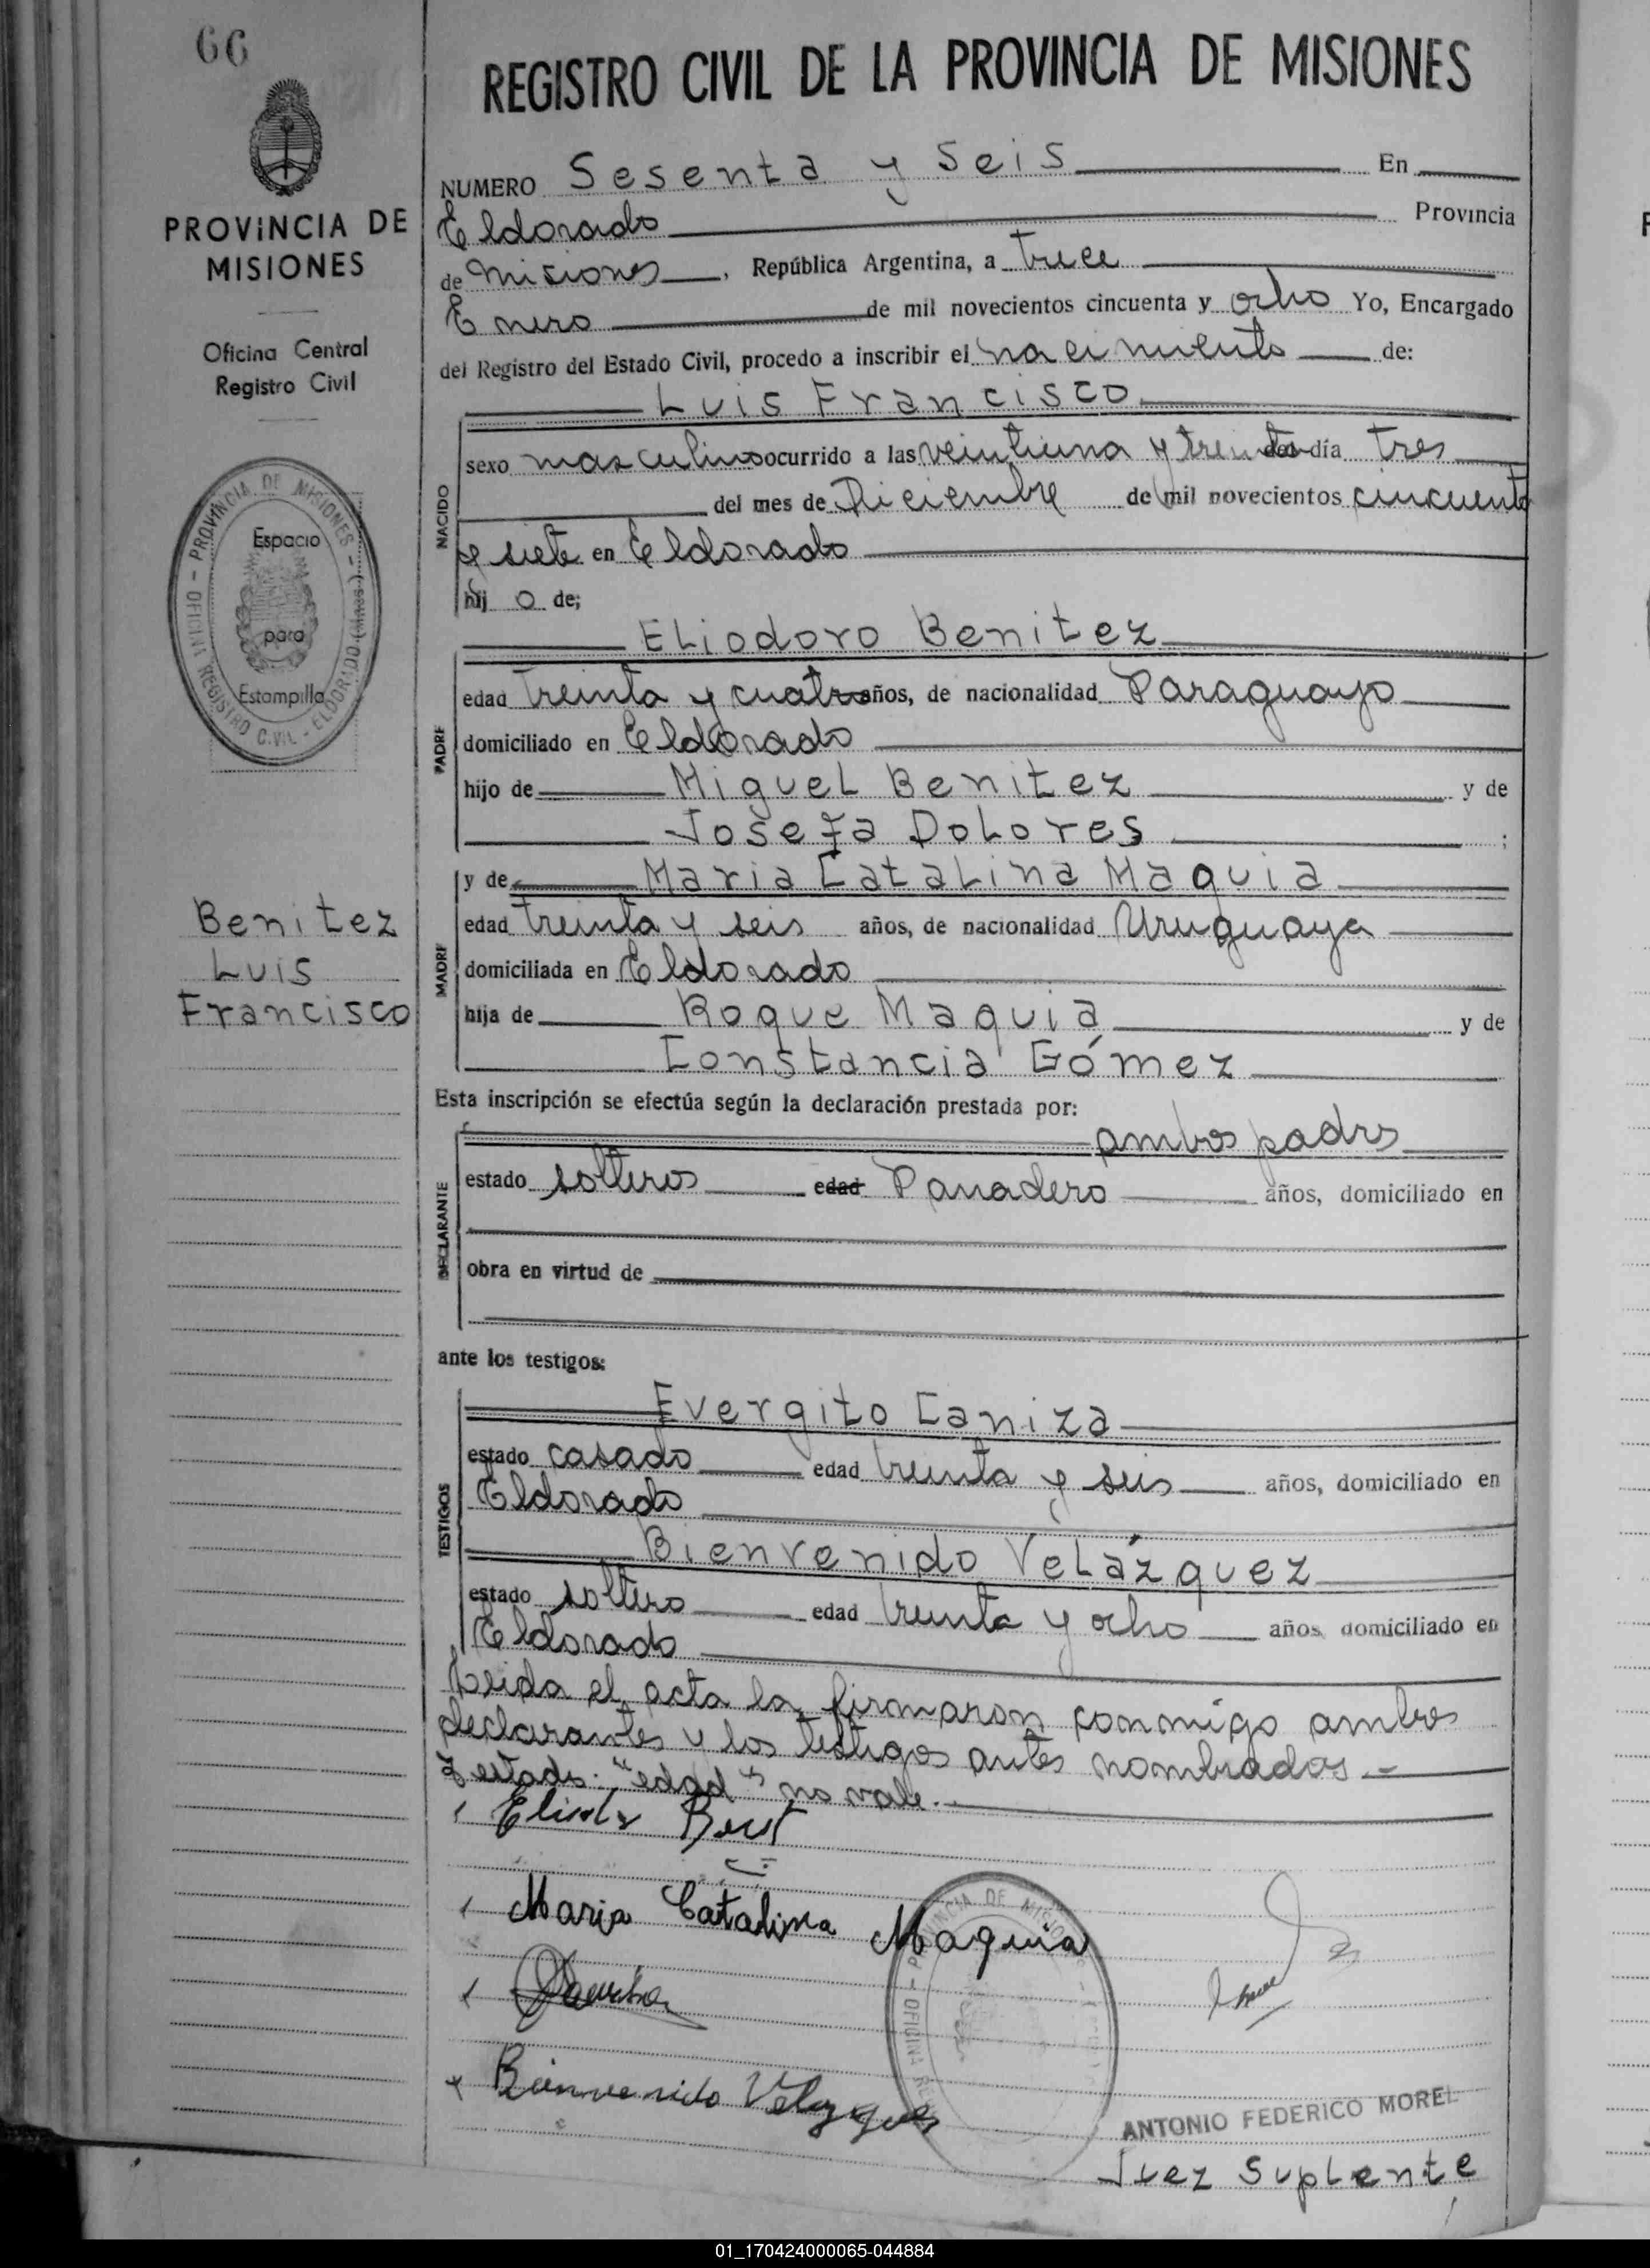 66
REGISTRO CIVIL DE LA PROVINCIA DE MISIONES
PROVINCIA DE
MISIONES
Oficina Central
Registro Civil
PROVINCIA DE MISIONES - OFICINA REGISTRO CIVIL - ELDORADO (Mnes.)
Espacio
para
Estampilla
Benitez
Luis
Francisco
NUMERO Sesenta y Seis En
Eldorado Provincia
de Misiones, República Argentina, a trece
Enero de mil novecientos cincuenta y ocho Yo, Encargado
del Registro del Estado Civil, procedo a inscribir el nacimiento de:
Luis Francisco
NACIDO
sexo masculino ocurrido a las veintiuna y treinta del día tres
del mes de Diciembre de mil novecientos cincuenta
y siete en Eldorado
hijo de;
Eliodoro Benitez
PADRE
edad treinta y cuatro años, de nacionalidad Paraguayo
domiciliado en Eldorado
hijo de Miguel Benitez y de
Josefa Dolores ;
MADRE
y de Maria Catalina Maquia
edad treinta y seis años, de nacionalidad Uruguaya
domiciliada en Eldorado
hija de Roque Maquia y de
Constancia Gómez
Esta inscripción se efectúa según la declaración prestada por:
ambos padres
DECLARANTE
estado solteros edad Panadero años, domiciliado en
obra en virtud de
ante los testigos:
TESTIGOS
Evergito Caniza
estado casado edad treinta y seis años, domiciliado en
Eldorado
Bienvenido Velázquez
estado soltero edad treinta y ocho años domiciliado en
Eldorado
Leida el acta la firmaron conmigo ambos
declarantes y los testigos antes nombrados.-
Testado: "edad" no vale.-
Maria Catalina Maquia
Bienvenido Velazquez
ANTONIO FEDERICO MOREL
Juez Suplente
01_170424000065-044884